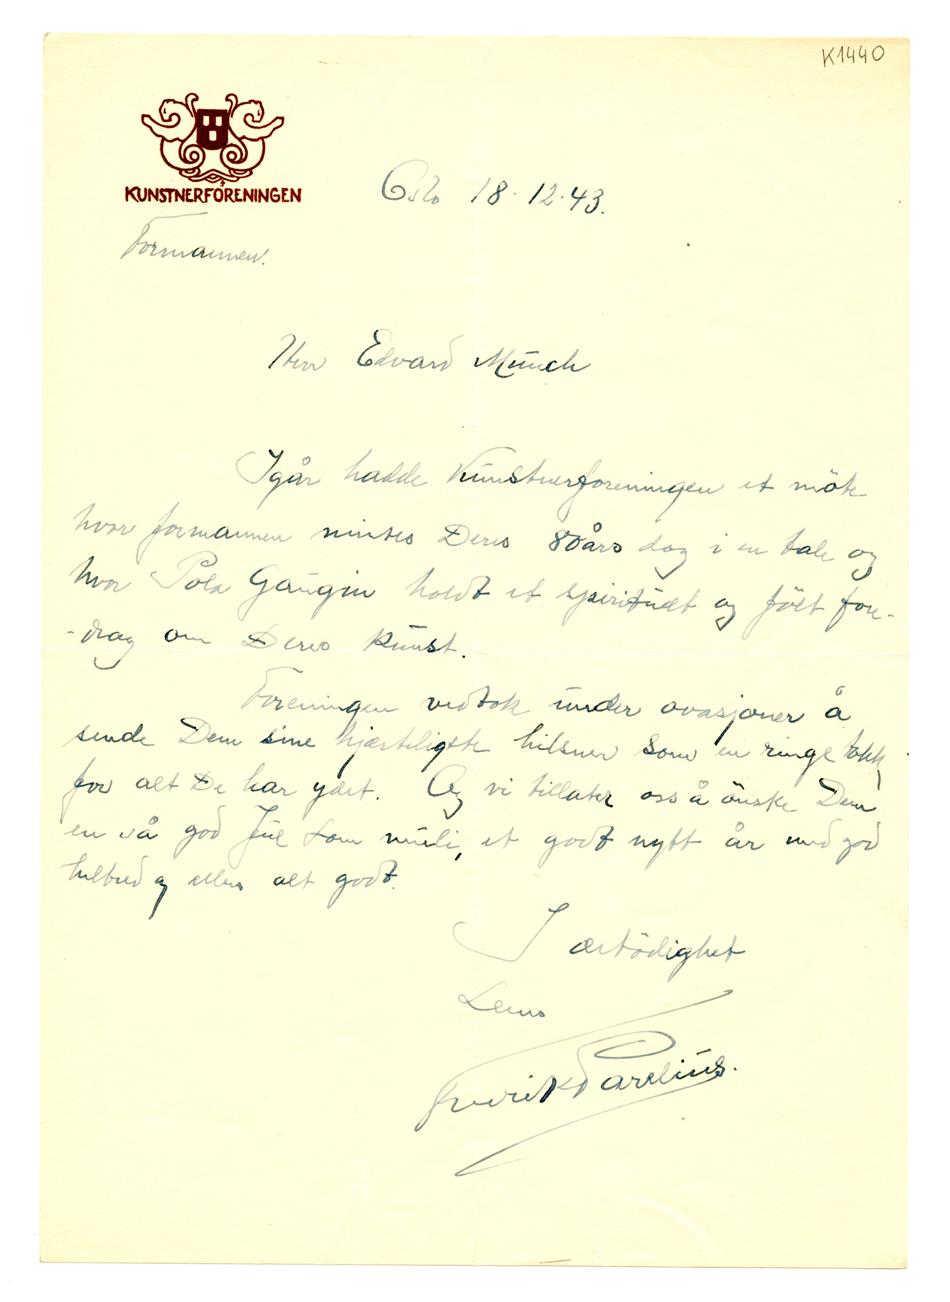 K1440
KUNSTNERFÖRENINGEN
Oslo 18.12.43.
Formannen.
Herr Edvard Munch
Igår hadde Kunstnerforeningen et möte
hvor formannen mintes Deres 80års dag i en tale og
hvor Pola Gaugin holdt et spirituelt og fölt fore-
-drag om Deres kunst.
Foreningen vedtok under ovasjoner å
sende Dem sine hjærteligste hilsner som en ringe takk
for alt De har ydet. Og vi tillater oss å önske Dem
en så god Jul som muli, et godt nytt år med god
helbred og ellers alt godt.
I ærbödighet
Deres
Fredrik Parelius.